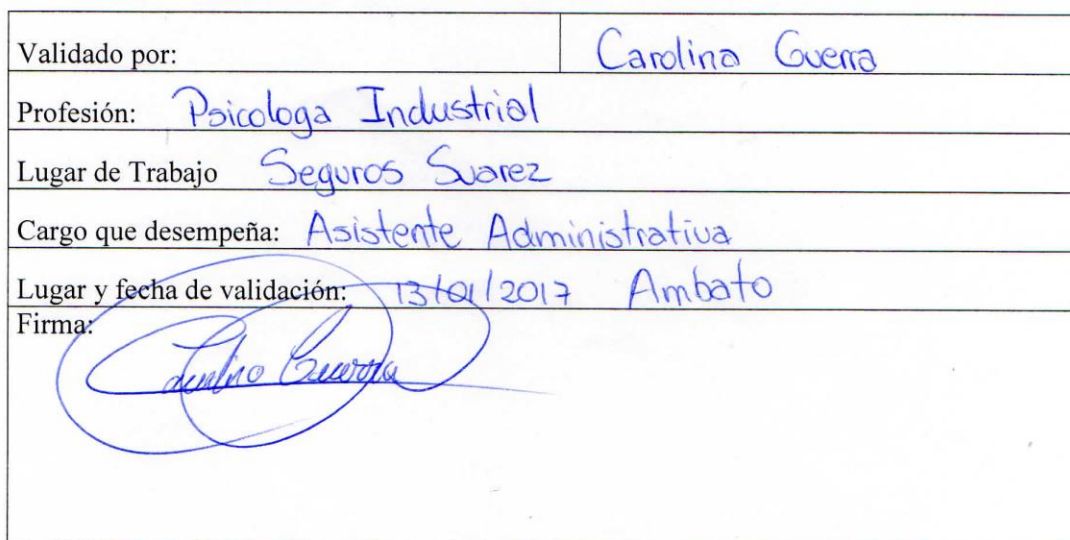 Validado por: Carolina Guerra
Profesión: Psicologa Industrial
Lugar de Trabajo Seguros Suarez
Cargo que desempeña: Asistente Administrativa
Lugar y fecha de validación: 13/01/2017 Ambato
Firma:
Carolina Guerra